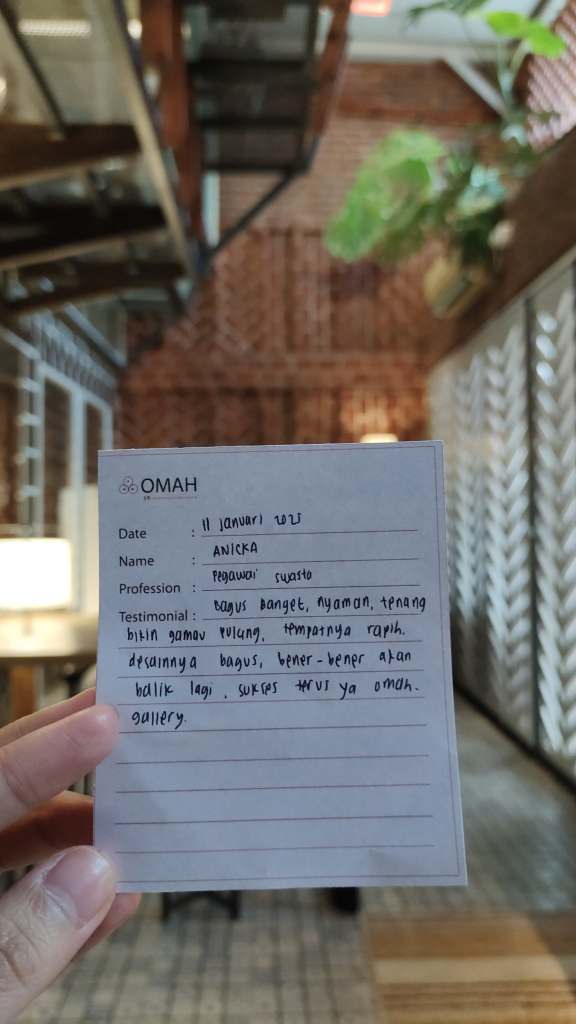 OMAH
Date : 11 januari 2025
Name : ANICKA
Profession : Pegawai swasta
Testimonial : Bagus banget, nyaman, tenang
bikin gamau pulang, tempatnya rapih.
desainnya bagus, bener-bener akan
balik lagi, sukses terus ya omah.
gallery.